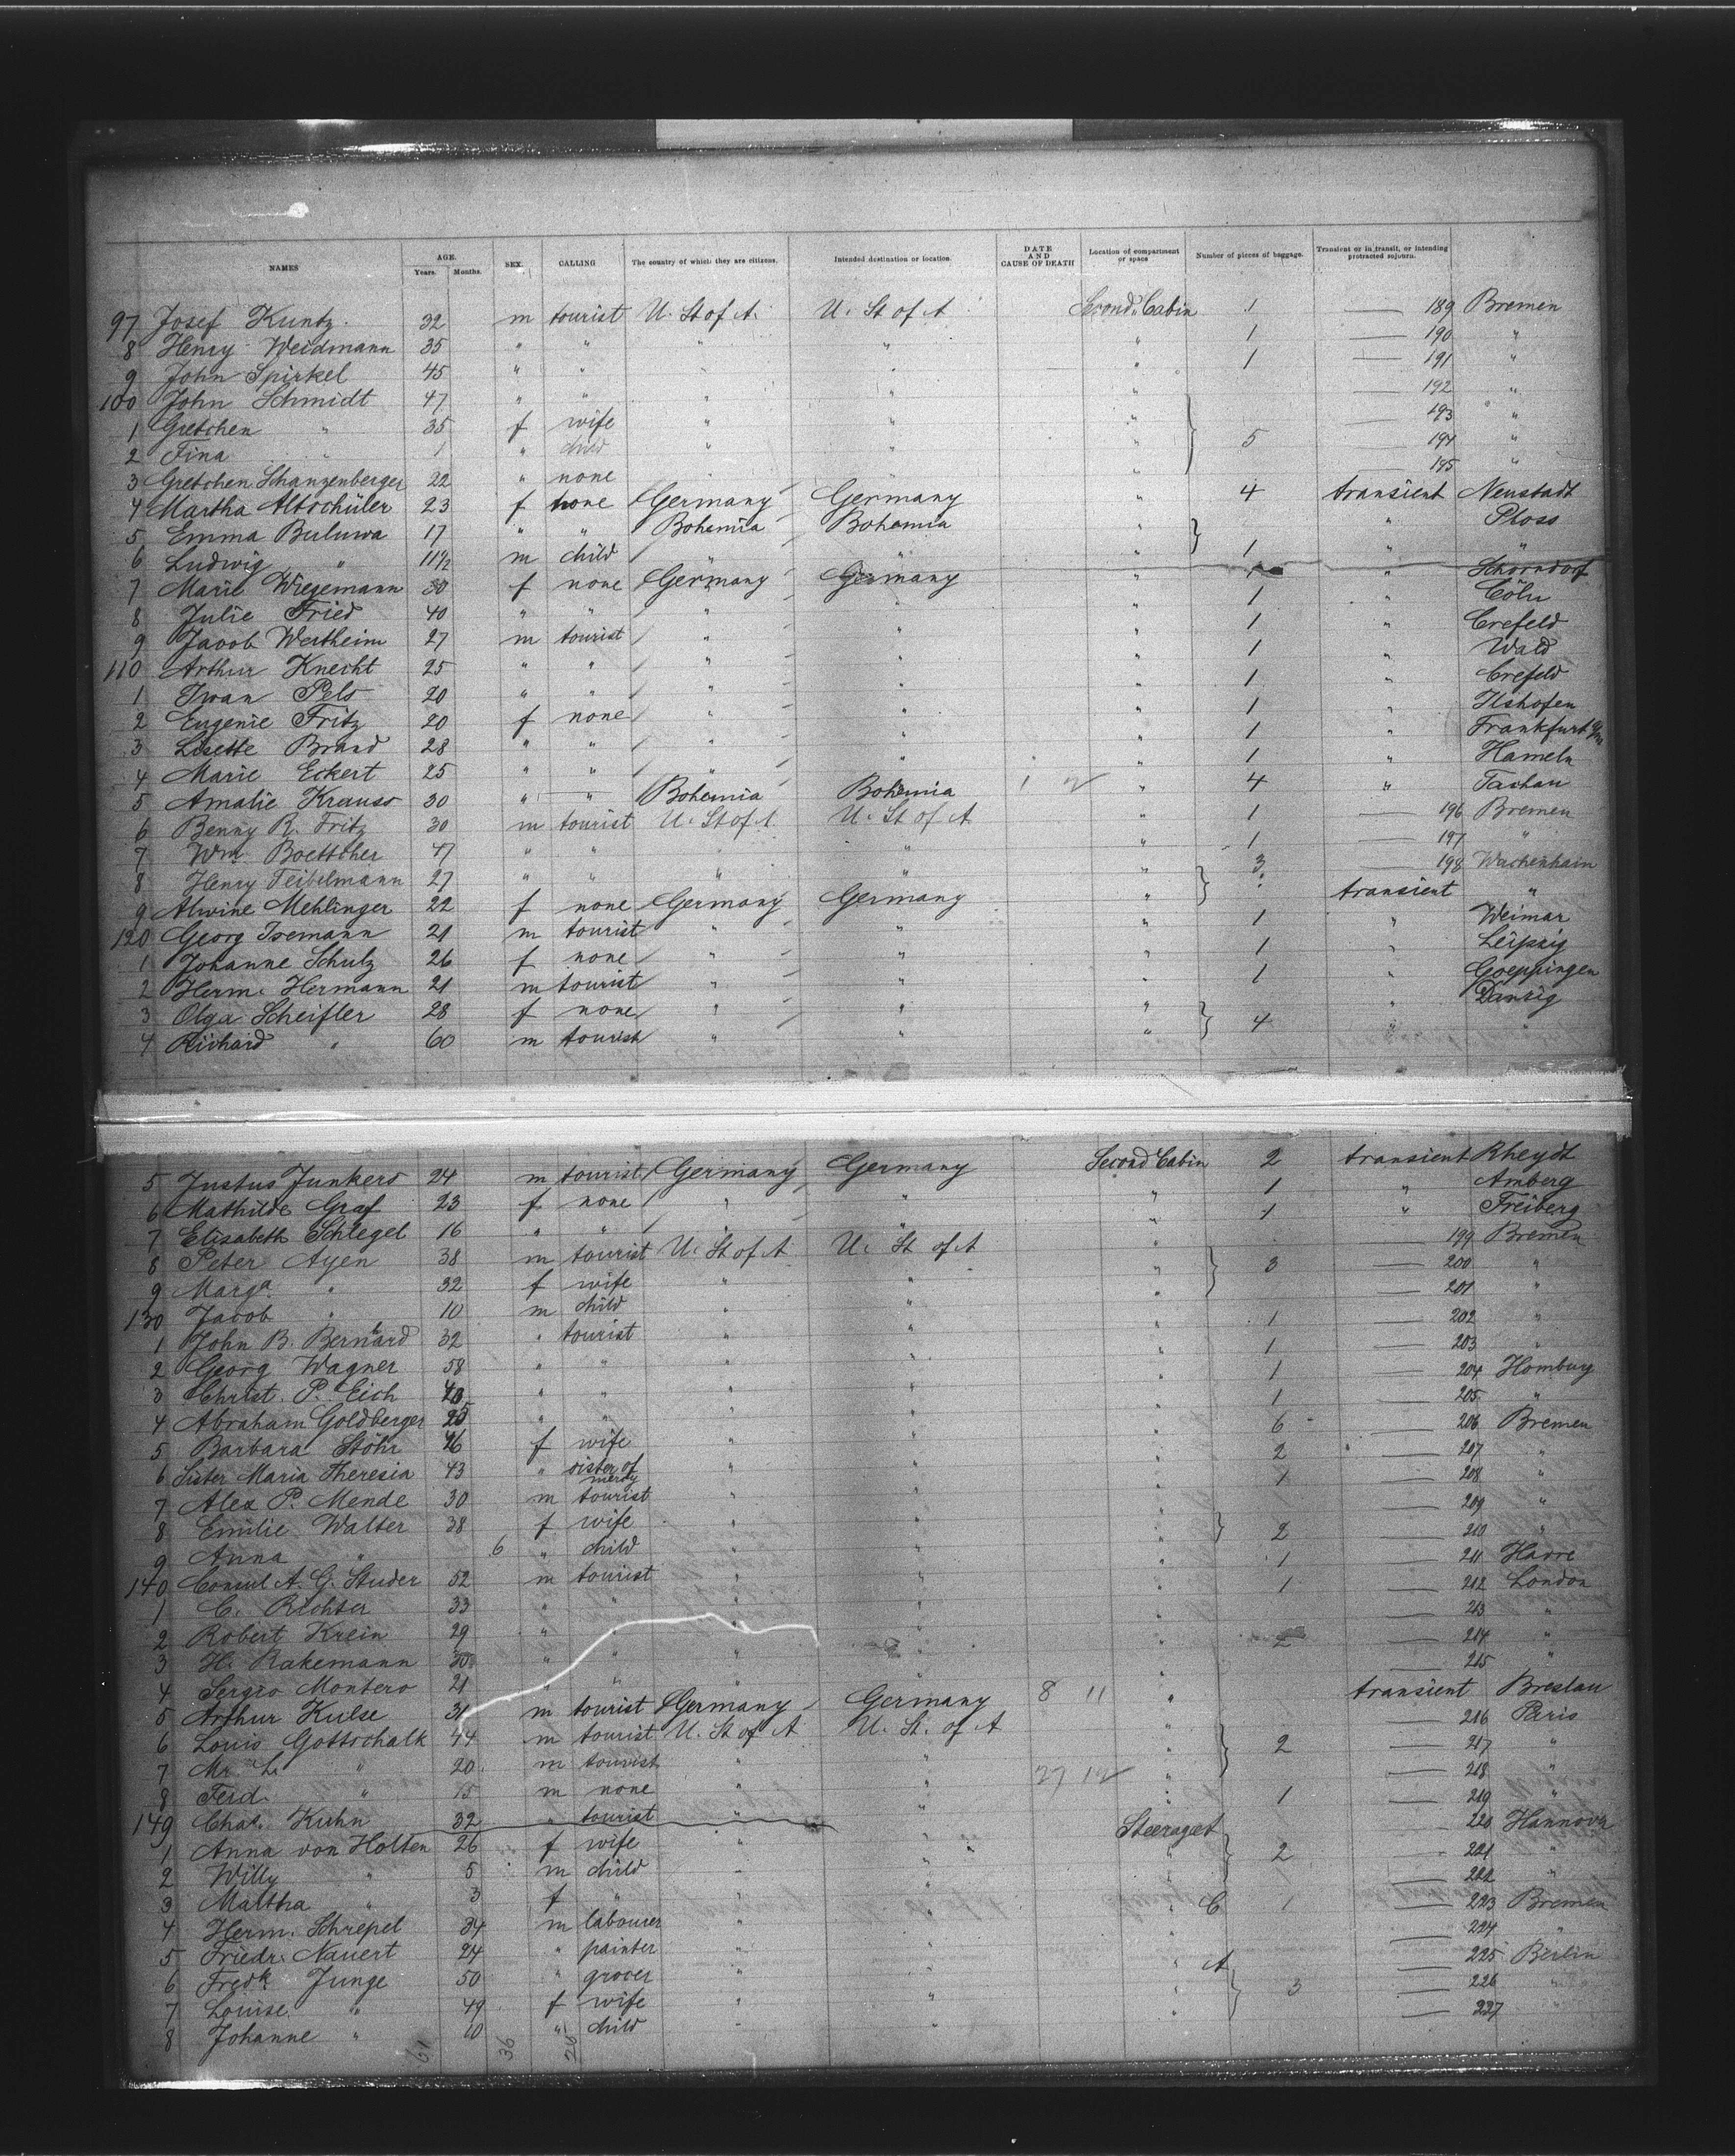 NAMES AGE. Years. Months. SEX. CALLING The country of which they are citizens. Intended destination or location. DATE AND CAUSE OF DEATH Location of compartment or space Number of pieces of baggage. Transient or in transit, or intending protracted sojourn.
97 Josef Kuntz. 32 m tourist U. St of A. U. St of A Second Cabin 1 — 189 Bremen
8 Henry Weidmann 35 " " " " " 1 — 190 "
9 John Spirkel 45 " " " " " 1 — 191 "
100 John Schmidt 47 " " " " " — 192 "
1 Gretchen " 35 f wife " " " — 193 "
2 Fina " 1 " child " " " 5 — 194 "
3 Gretchen Schanzenberger 22 " none " " " — 195 "
4 Martha Altschüler 23 f none Germany Germany " 4 transient Neustadt
5 Emma Buluwa 17 " " Bohemia Bohemia " " Ploss
6 Ludwig " 11½ m child " " " 1 " "
7 Marie Wiegemann 30 f none Germany Germany " 1 " Schorndorf
8 Julie Fried 40 " " " " " 1 " Cöln
9 Jacob Wertheim 27 m tourist " " " 1 " Crefeld
110 Arthur Knecht 25 " " " " " 1 " Wald
1 Iwan Pels 20 " " " " " 1 " Crefeld
2 Eugenie Fritz 20 f none " " " 1 " Ilshofen
3 Lisette Brand 28 " " " " " 1 " Frankfurt
4 Marie Eckert 25 " " " " " 1 " Hameln
5 Amalie Krauss 30 " " Bohemia Bohemia " 4 " Tachau
6 Benny R. Fritz 30 m tourist U. St of A U. St of A " 1 — 196 Bremen
7 Wm Boettcher 47 " " " " " 1 — 197 "
8 Henry Teitelmann 27 " " " " " 3 — 198 Wachenhaim
9 Alwine Mehlinger 22 f none Germany Germany " transient "
120 Georg Isemann 21 m tourist " " " 1 " Weimar
1 Johanne Schulz 26 f none " " " 1 " Leipzig
2 Herm. Hermann 21 m tourist " " " 1 " Goeppingen
3 Olga Scheifler 28 f none " " " " Danzig
4 Richard " 60 m tourist " " " 4 " "
5 Justus Junkers 24 m tourist Germany Germany Second Cabin 2 transient Rheydt
6 Mathilde Graf 23 f none " " " 1 " Amberg
7 Elisabeth Schlegel 16 " " " " " 1 " Freiberg
8 Peter Ayen 38 m tourist U. St of A U. St of A " — 199 Bremen
9 Marga " 32 f wife " " " 3 — 200 "
130 Jacob " 10 m child " " " — 201 "
1 John B. Bernhard 32 " tourist " " " 1 — 202 "
2 Georg Wagner 58 " " " " " 1 — 203 "
3 Christ. P. Eich " " " " " 1 — 204 Homburg
4 Abraham Goldberger 25 " " " " " 1 — 205 "
5 Barbara Stöhr 26 f wife " " " 6 — 206 Bremen
6 Sister Maria Theresia 43 " sister of mercy " " " 2 — 207 "
7 Alex P. Mende 30 m tourist " " " 1 — 208 "
8 Emilie Walter 38 f wife " " " — 209 "
9 Anna " 6 " child " " " 2 — 210 "
140 Consul A. G. Studer 52 m tourist " " " 1 — 211 Havre
1 C. Richter 33 " " " " " 1 — 212 London
2 Robert Krein 29 " " " " " — 213 "
3 H. Rakemann 30 " " " " " 2 — 214 "
4 Sergio Montero 21 " " " " " — 215 "
5 Arthur Kulse 31 m tourist Germany Germany 8 11 " transient Breslau
6 Louis Gottschalk 44 m tourist U. St of A U. St. of A " — 216 Paris
7 Mr. L. " 20 m tourist " " " 2 — 217 "
8 Ferd. " 15 m none " " " — 218 "
149 Chas. Kuhn 32 " tourist " " " 1 — 219 "
1 Anna von Holten 26 f wife " " Steerage — 220 Hannover
2 Willy " 5 m child " " " 2 — 221 "
3 Martha " 3 f " " " " — 222 "
4 Herm. Schrepel 34 m labourer " " " C 1 — 223 Bremen
5 Friedr. Nauert 24 " painter " " " — 224 "
6 Fredk Junge 50 " grocer " " " A — 225 Berlin
7 Louise " 49 f wife " " " 3 — 226 "
8 Johanne " 10 " child " " " — 227 "
61 36 26